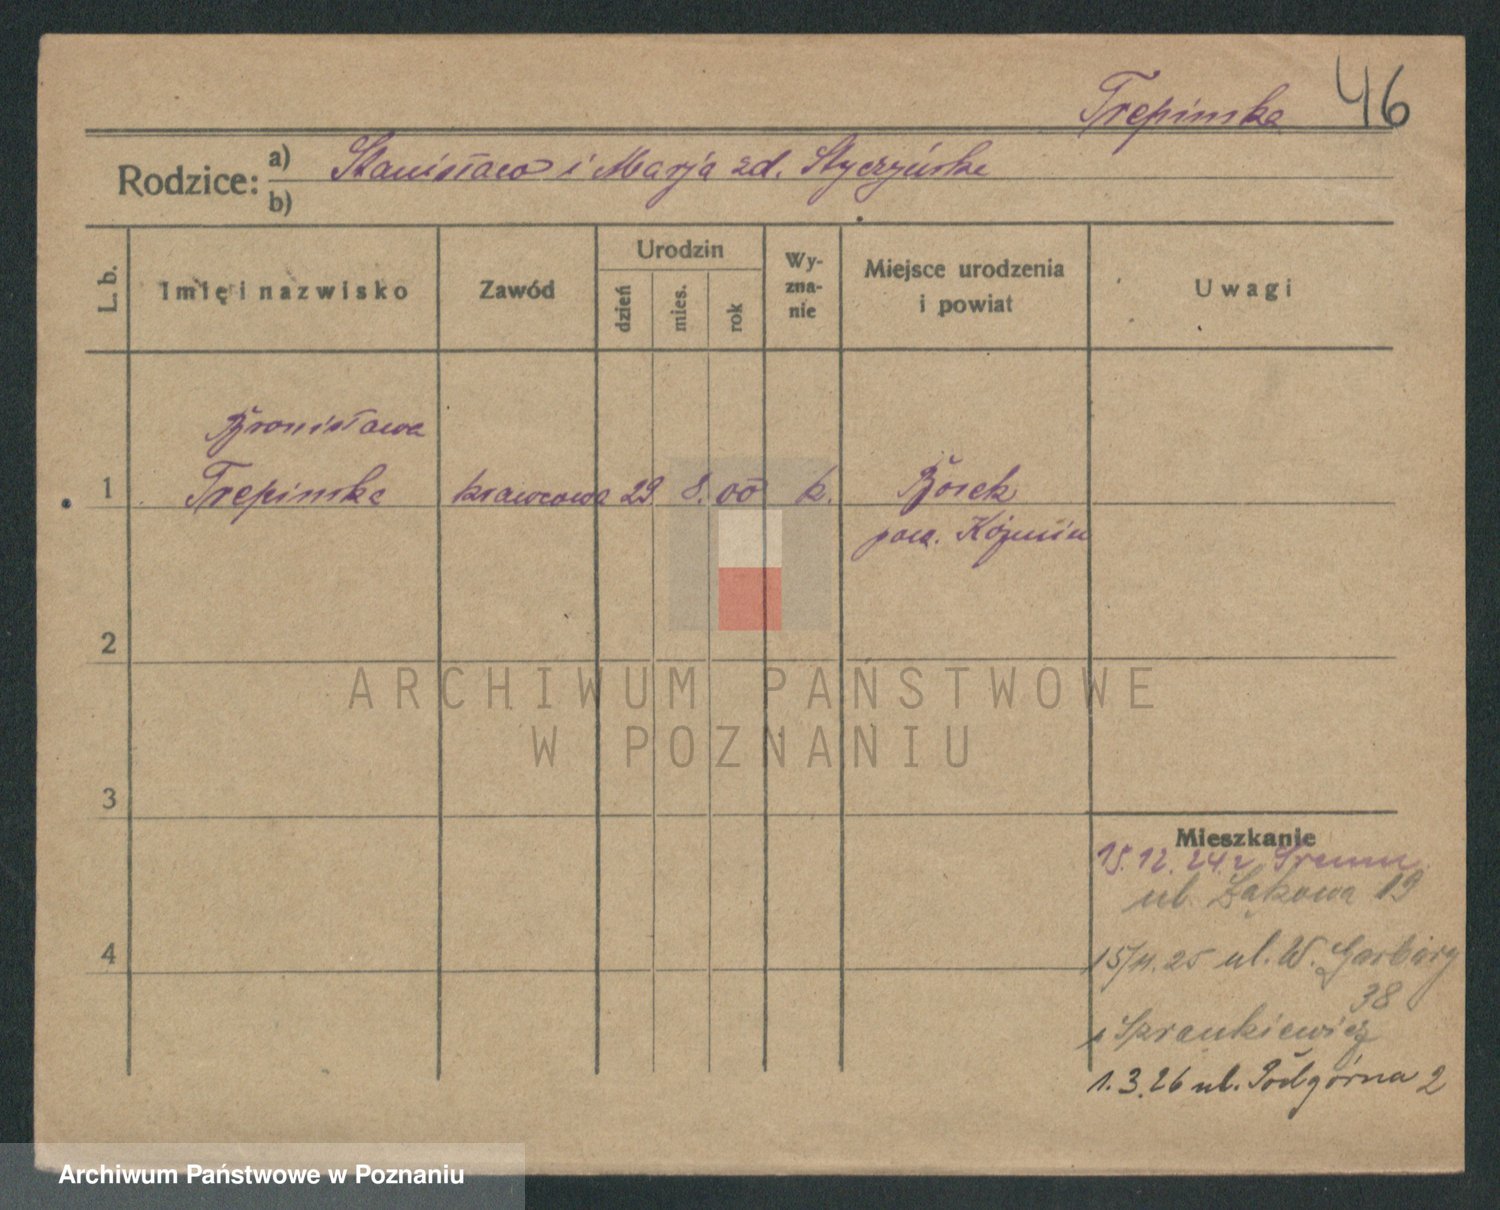 Trepinska 46
Rodzice: a) Stanisław i Marja zd. Styczyńska
b)
L. b. Imię i nazwisko Zawód Urodzin dzień mies. rok Wyznanie Miejsce urodzenia i powiat Uwagi
Bronisława
1 Trepinska krawcowa 29. 8. 00 k. Borek
pow. Koźmin
2
ARCHIWUM PAŃSTWOWE
W POZNANIU
3
Mieszkanie
15.12.24 z Śremu
ul. Łąkowa 19
15/11.25 ul. W. Garbary
38
Szrankiewicz
4
1.3.26 ul. Podgórna 2
Archiwum Państwowe w Poznaniu